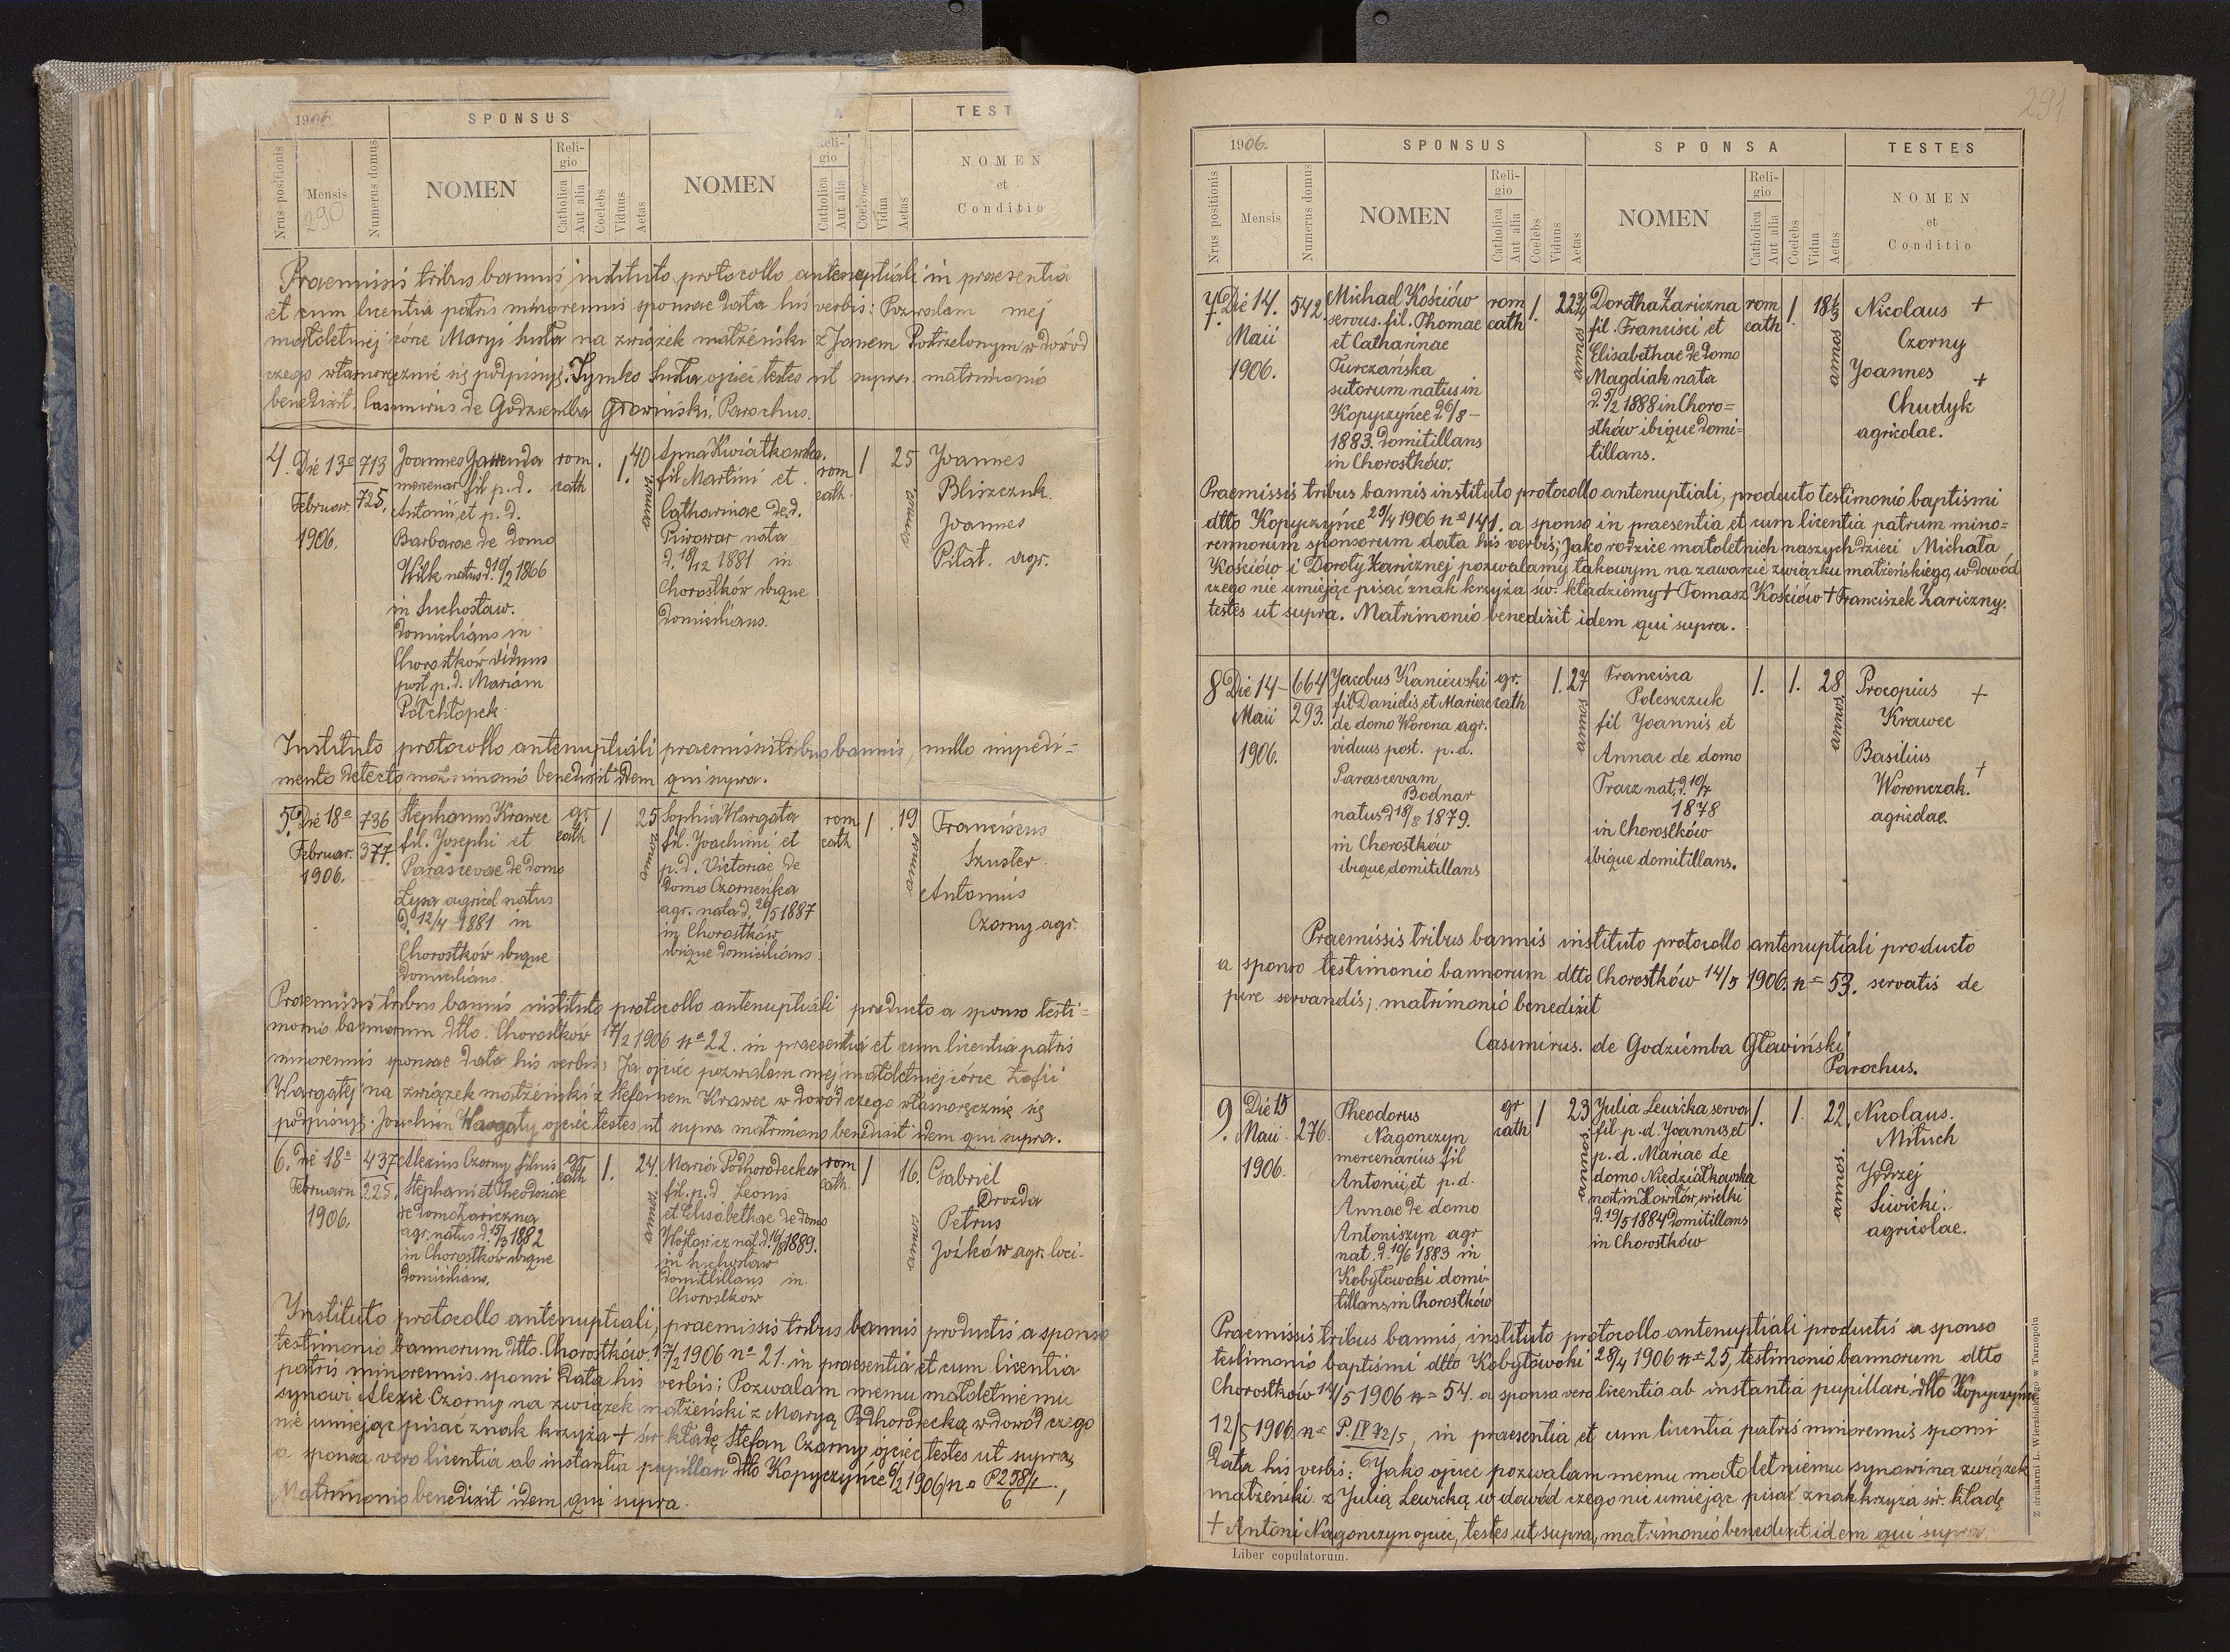 1906.
SPONSUS
TEST
Nrus positionis
Mensis
290
Numerus domus
NOMEN
Religio
Catholica
Aut alia
Coelebs
Viduus
Aetas
NOMEN
Catholica
Aut alia
Vidua
Aetas
NOMEN
et
Conditio
Praemissis tribus bannis instituto protocollo antenuptiali in praesentia
et cum licentia patris minorennis sponsae data his verbis: Pozwalam mej
małoletniej córce Maryi Susta na związek małżeński z Janem Postrzelonym w dowód
czego własnoręcznie się podpisuję. Tymko Susta, ojciec testes ut supra. matrimonio
benedixit. Casimirus de Godziemba Głowiński, Parochus.
4. Die 13a
Februar.
1906.
713
725.
Joannes Gawenda
mercenar fil p. d.
Antonii, et p. d.
Barbarae de domo
Wilk natus d. 10/2 1866
in Suchostaw.
domicilians in
Chorostków viduus
post p. d. Mariam
Półchłopek.
rom.
cath
1.
40
annos
Anna Kwiatkowska.
fil Martini et
Catharinae de d.
Piwowar nata
d. 18/12 1881 in
Chorostków ibique
domicilians.
rom
cath.
1
25
annos
Joannes
Bliszczuk.
Joannes
Piłat. agr.
Instituto protocollo antenuptiali praemissis tribus bannis, nullo impedi-
mento detecto, matrimonio benedixit idem qui supra.
5. Die 18a
Februar.
1906.
736
377.
Stephanus Krawec
fil. Josephi et
Parascevae de domo
Lysa agricol natus
d. 12/4 1881 in
Chorostków ibique
domicilians.
gr.
cath
1
25
annos
Sophia Wargata
fil. Joachimi et
p. d. Victoriae de
domo Czorneńka
agr. nata d. 26/5 1887
in Chorostków
ibique domicilians
rom
cath
1
19
annos
Franciscus
Szuster.
Antonius
Czorny agr.
Praemissis tribus bannis instituto protocollo antenuptiali producto a sponso testi-
monio bannorum dtto. Chorostków 17/2 1906 No 22. in praesentia et cum licentia patris
minorennis sponsae data his verbis: Ja ojciec pozwalam mej małoletniej córce Zofii
Wargatej na związek małżeński z Stefanem Krawec w dowód czego własnoręcznie się
podpisuję. Joachim Wargaty ojciec testes ut supra matrimonio benedixit idem qui supra.
6. Die 18a
Februarii
1906.
437
225.
Alexius Czorny filius
Stephani et Theodosiae
de domo Zariczna
agr. natus d. 15/3 1882
in Chorostków ibique
domicilians.
gr.
cath
1.
24.
annos
Maria Podhorodecka
fil. p. d. Leonis
et Elisabethae de domo
in Suchostaw
domitillans in
Chorostkow
rom
cath.
1
16.
annos
Gabriel
Drozda
Petrus
Joźków agr. loci.
Instituto protocollo antenuptiali, praemissis tribus bannis productis a sponso
testimonio bannorum dtto. Chorostków. 17/2 1906 No 21. in praesentia et cum licentia
patris minorennis sponsi data his verbis; Pozwalam memu małoletniemu
synowi Alexie Czorny na związek małżeński z Maryą Podhorodecką w dowód czego
nie umiejąc pisać znak krzyża + św. kładę Stefan Czorny ojciec testes ut supra,
a sponsa vero licentia ab instantia pupillari dtto Kopyczyńce 6/2 1906 No P 258/1
6
Matrimonio benedixit idem qui supra.
291
1906.
SPONSUS
SPONSA
TESTES
Nrus positionis
Mensis
Numerus domus
NOMEN
Religio
Catholica
Aut alia
Coelebs
Viduus
Aetas
NOMEN
Religio
Catholica
Aut alia
Coelebs
Vidua
Aetas
NOMEN
et
Conditio
7. Die 14.
Maii
1906.
542.
Michael Kościów
servus. fil. Thomae
et Catharinae
Turczańska
sutorum natus in
Kopyczyńce d. 6/8 -
1883. domitillans
in Chorostków.
rom
cath
1.
22 3/4
annos
Dorotha Zariczna
fil. Francisci et
Elisabethae de domo
Magdiak nata
d. 5/2 1888 in Choro=
stków ibique domi=
tillans.
rom
cath
1.
18 1/3
annos
Nicolaus +
Czorny
Joannes +
Chudyk
agricolae.
Praemissis tribus bannis instituto protocollo antenuptiali, producto testimonio baptismi
dtto Kopyczyńce 25/4 1906 No 141. a sponso in praesentia et cum licentia patrum mino=
rennorum sponsorum data his verbis; Jako rodzice małoletnich naszych dzieci Michała
Kościów i Doroty Zaricznej pozwalamy takowym na zawarcie związku małżeńskiego, w dowód
czego nie umiejąc pisać znak krzyża św. kładziemy + Tomasz Kościów + Franciszek Zariczny.
testes ut supra. Matrimonio benedixit idem qui supra.
8 Die 14-
Maii
1906.
664
293.
Jacobus Kaniewski
fil Danielis, et Mariae
de domo Worona agr.
viduus post. p. d.
Parascevam
Bodnar
natus d 18/8 1879.
in Chorostków
ibique domitillans
gr.
cath
1.
27
annos
Francisca
Poleszczuk
fil Joannis et
Annae de domo
Tracz nat. d. 10/7
1878
in Chorostków
ibique domitillans.
1.
1.
28
annos
Procopius +
Krawec
Basilius +
Woronczak.
agricolae.
Praemissis tribus bannis instituto protocollo antenuptiali producto
a sponso testimonio bannorum dtto Chorostków 14/5 1906. No 53. servatis de
jure servandis; matrimonio benedixit
Casimirus. de Godziemba Głowiński
Parochus.
9. Die 15
Maii
1906.
276.
Theodorus
Nagonczyn
mercenarius fil
Antonii, et p. d.
Annae de domo
Antoniszyn agr
nat. d. 10/6 1883 in
Kobyłowoki domi-
tillans, in Chorostków
gr
cath
1
23
annos
Julia Lewicka serva
fil. p. d. Joannis, et
p. d. Mariae de
domo Niedziałkowska
nat. in Howiłów, wielki
d. 19/5 1884 domitillans
in Chorostków
1.
1.
22.
annos.
Nicolaus.
Miłuch
Jędrzej
Siwicki.
agricolae.
Praemissis tribus bannis, instituto protocollo antenuptiali productis a sponso
testimonio baptismi dtto Kobyłowoki 28/4 1906 No 25, testimonio bannorum dtto
Chorostków 14/5 1906 No 54. a sponsa vero licentia ab instantia pupillari. dtto Kopyczyńce
12/5 1906. No P. IV 72/5, in praesentia et cum licentia patris minorennis sponsi
6
data his verbis: Jako ojciec pozwalam memu małoletniemu synowi na związek
małżeński z Julią Lewicką w dowód czego nie umiejąc pisać znak krzyża św. kładę
+ Antoni Nagonczyn ojciec, testes ut supra, matrimonio benedixit idem qui supra.
Liber copulatorum.
Z drukarni L. Wierzbickiego w Tarnopolu